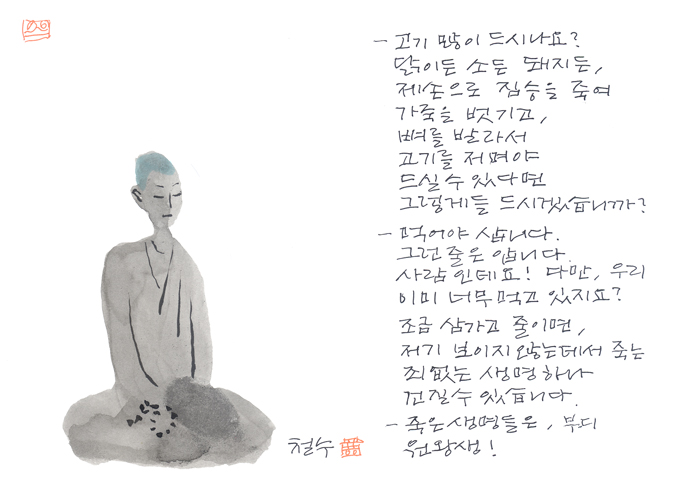 - 고기 많이 드시나요?
닭이든 소든 돼지든,
제손으로 짐승을 죽여
가죽을 벗기고,
뼈를 발라서
고기를 저며야
드실수 있다면
그렇게들 드시겠습니까?
- 먹어야 삽니다.
그런 줄은 압니다.
사람인데요! 다만, 우리
이미 너무 먹고 있지요?
조금 삼가고 줄이면,
저기 보이지 않는데서 죽는
죄없는 생명하나
건질수 있습니다.
- 죽은 생명들은, 부디
원왕생!
철수